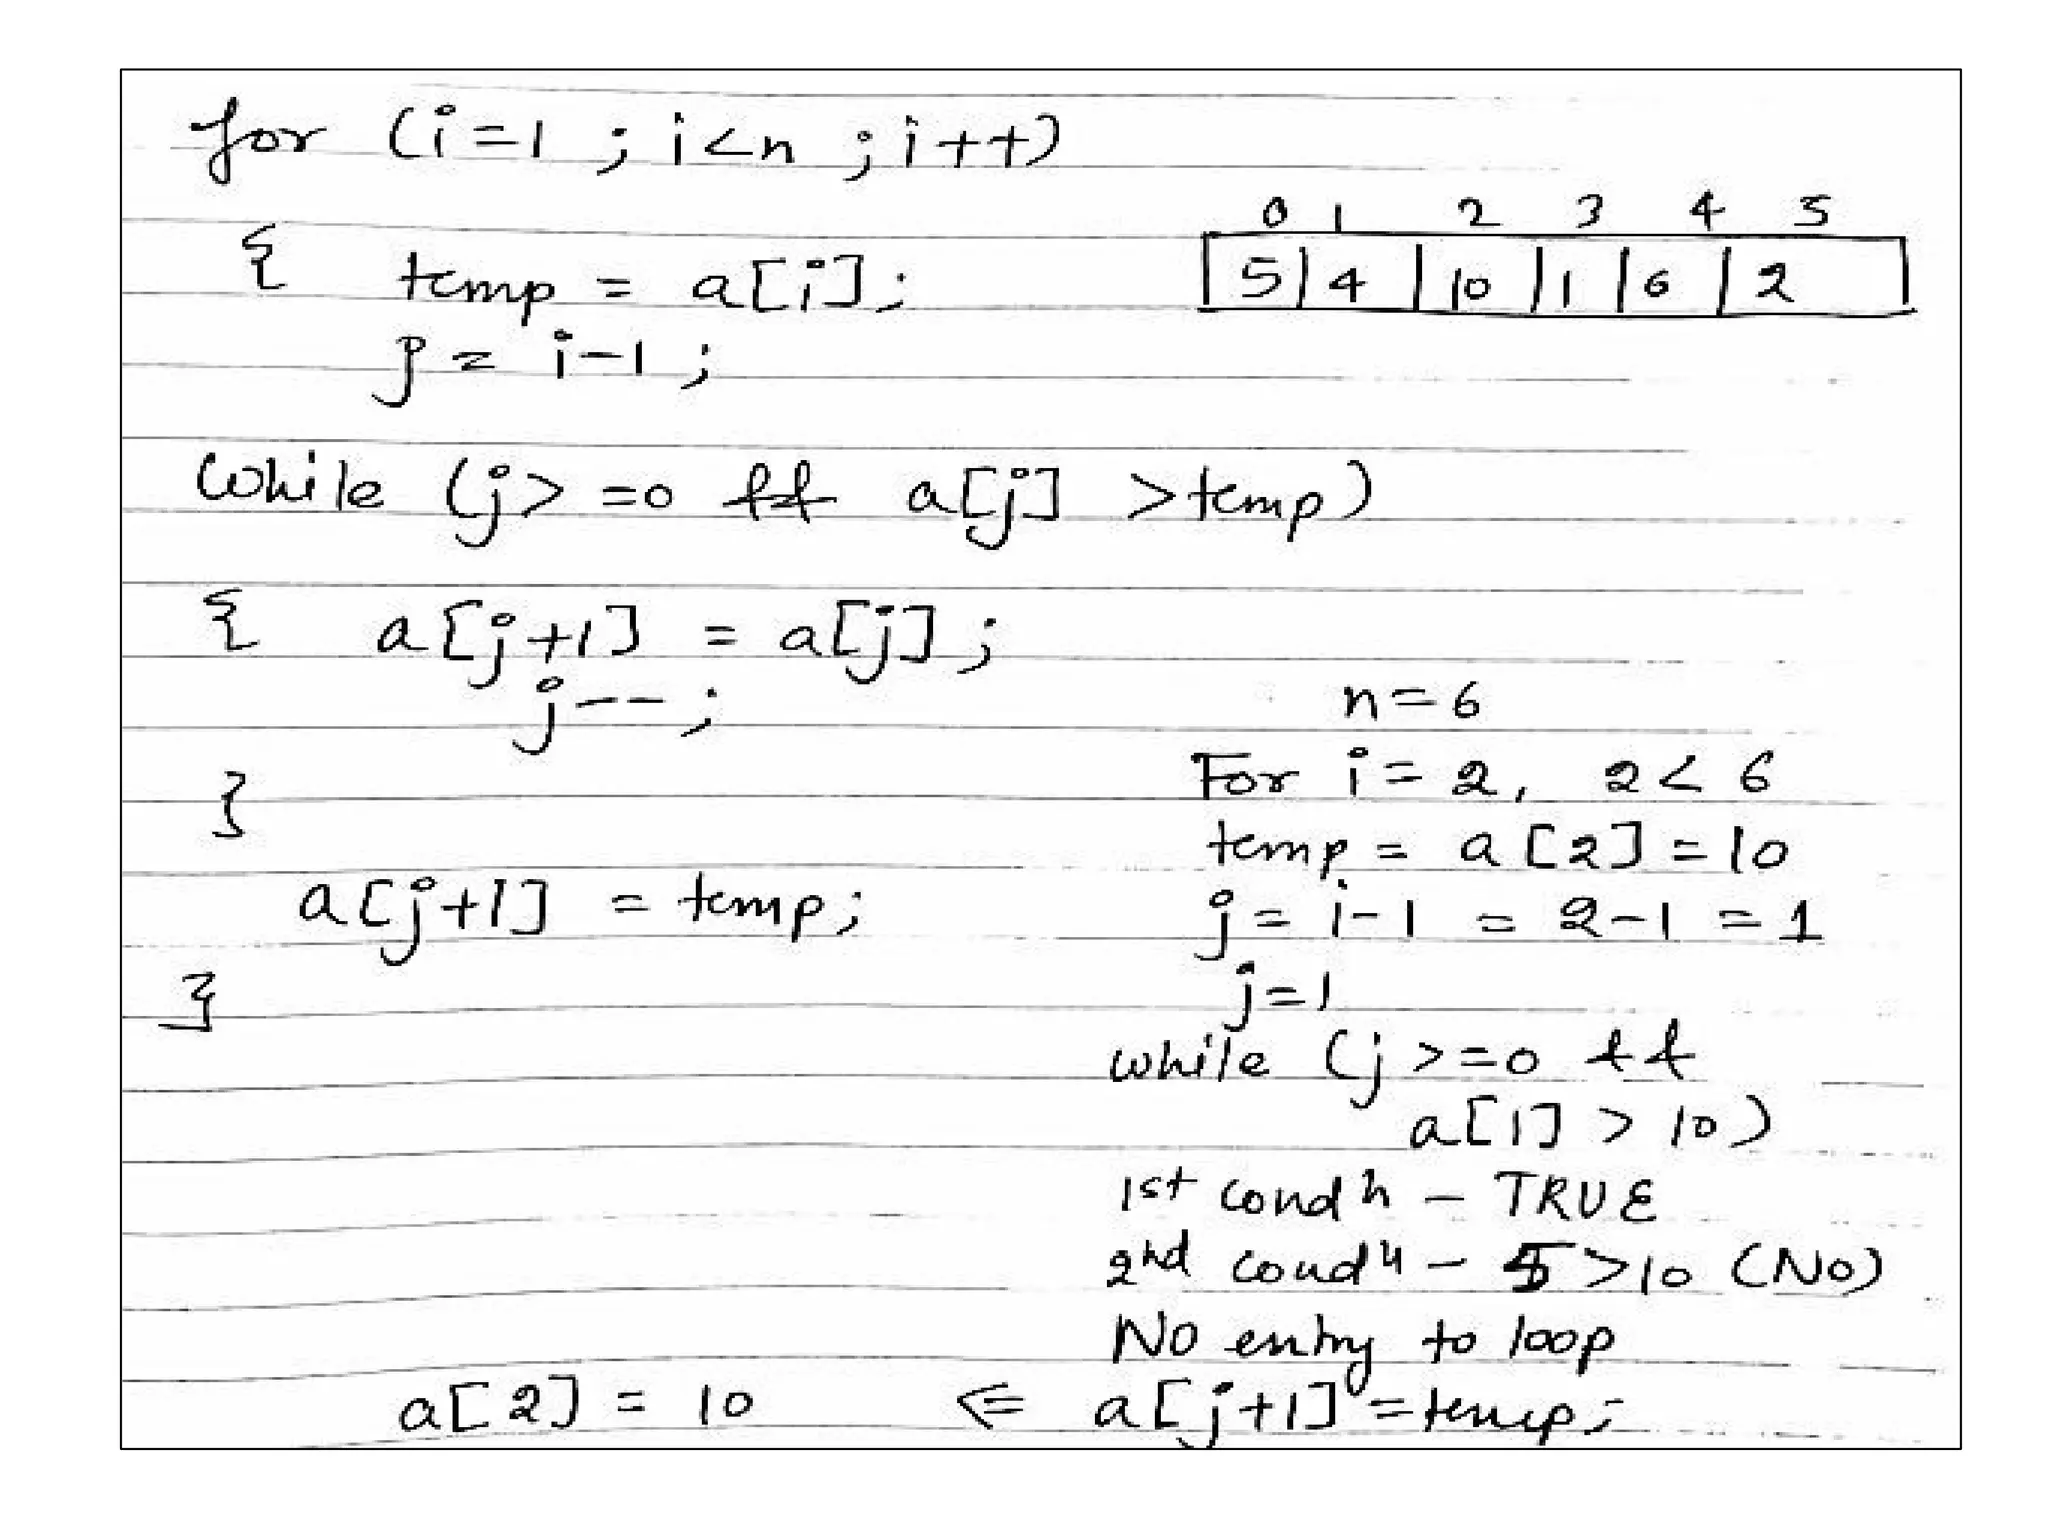 for (i=1 ; i<n ; i++)
0 1 2 3 4 5
{ temp = a[i];
5 | 4 | 10 | 1 | 6 | 2
j = i-1 ;
while (j> =0 && a[j] >temp)
{ a[j+1] = a[j] ;
j-- ;
}
a[j+1] = temp;
}
n=6
For i= 2, 2< 6
temp = a[2] = 10
j = i-1 = 2-1 = 1
j=1
while (j >=0 &&
a[1] > 10)
1st condn - TRUE
2nd condn - 5 >10 (NO)
No entry to loop
a[2] = 10 <= a[j+1] = temp;